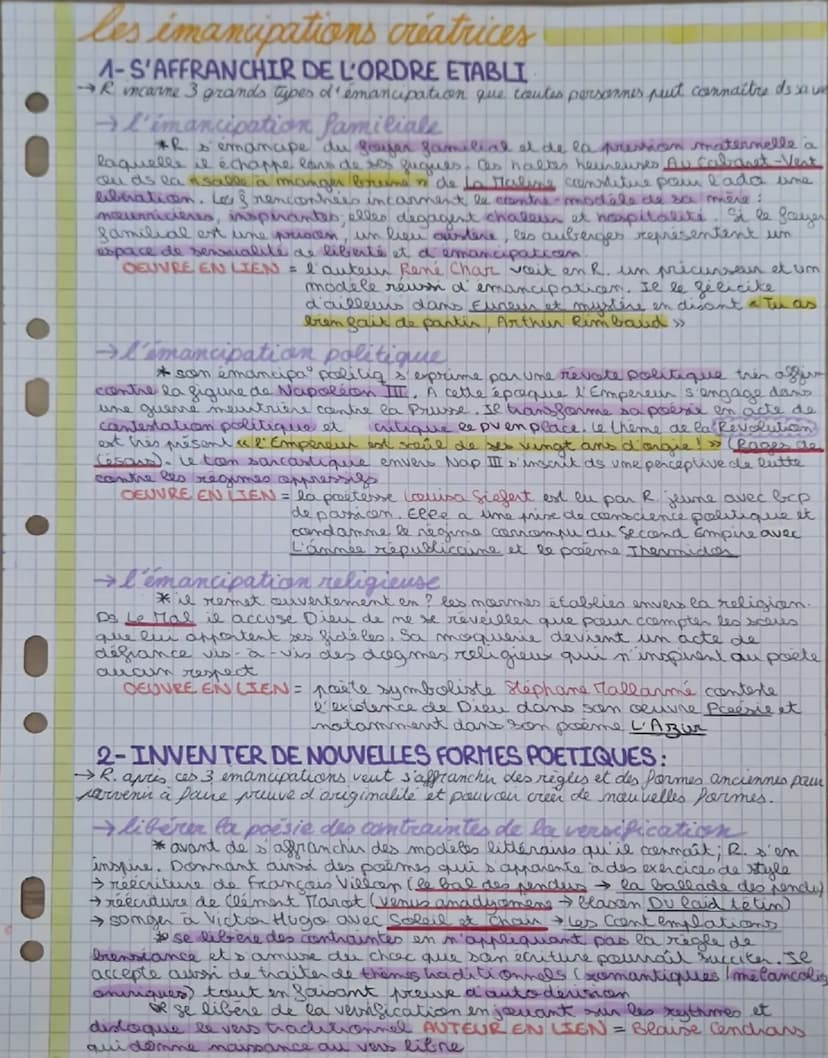 les émancipations créatrices
1- S'AFFRANCHIR DE L'ORDRE ETABLI
→ R incarne 3 grands types d'émancipation que toutes personnes peut connaître ds sa
→ l'émancipation familiale
*R s'émancipe du foyer familial et de la pression maternelle à
laquelle il échappe lors de ses fugues. Ces haltes heureuses Au Cabaret-Vert
ou ds la « salle à manger brune » de La Maline constitue pour l'ado une
libération. Les f rencontrées incarnent le contre-modèle de sa mère :
nourricières, inspirantes, elles dégagent chaleur et hospitalité. Si le foyer
familial est une prison, un lieu austère, les auberges représentent un
espace de sensualité de liberté et d'émancipation.
OEUVRE EN LIEN = l'auteur René Char voit en R. un précurseur et un
modèle réussi d'émancipation. Il le félicite
d'ailleurs dans Fureur et mystère en disant « Tu as
bien fait de partir, Arthur Rimbaud »
→ l'émancipation politique
* son émancipa° politiq s'exprime par une révolte politique très
contre la figure de Napoléon III. A cette époque l'Empereur s'engage dans
une guerre meurtrière contre la Prusse. Il transforme sa poésie en acte de
contestation politique et critique le pv en place. Le thème de la Révolution
est très présent « l'Empereur est soûle de ses vingt ans d'orgie ! » (Rages de
Césars). Le ton sarcastique envers Nap III s'inscrit ds une perceptive de lutte
contre les régimes oppressifs
OEUVRE EN LIEN = la poétesse Louisa Siefert est lu par R. jeune avec bcp
de passion. Elle a une prise de conscience politique et
condamne le régime corrompu du Second Empire avec
L'année républicaine et le poème Thermidor
→ l'émancipation religieuse
* il remet ouvertement en ? les normes établies envers la religion.
Ds Le Mal il accuse Dieu de ne se réveiller que pour compter les sous
que lui apportent ses fidèles. Sa moquerie devient un acte de
défiance vis-à-vis des dogmes religieux qui n'inspirent au poète
aucun respect
OEUVRE EN LIEN = poète symboliste Stéphane Mallarmé conteste
l'existence de Dieu dans son oeuvre Poésie et
notamment dans son poème L'Azur
2- INVENTER DE NOUVELLES FORMES POETIQUES :
→ R. après ces 3 émancipations veut s'affranchir des règles et des formes anciennes pour
parvenir à faire preuve d'originalité et pouvoir créer de nouvelles formes.
→ libérer la poésie des contraintes de la versification
* avant de s'affranchir des modèles littéraires qu'il connaît ; R. s'en
inspire. Donnant ainsi des poèmes qui s'apparente à des exercices de style
→ réécriture de François Villon (le bal des pendus → la ballade des pendus)
→ réécriture de Clément Marot (Venus anadyomène → blason Du laid tétin)
→ songer à Victor Hugo avec Soleil et Chair → Les Contemplations
* se libère des contraintes en n'appliquant pas la règle de
bienséance et s'amuse du choc que son écriture pourrait susciter. Il
accepte aussi de traiter de thèmes traditionnels (romantiques / melancolie
oniriques) tout en faisant preuve d'autodérision
* se libère de la versification en jouant sur les rythmes et
disloque le vers traditionnel AUTEUR EN LIEN = Blaise Cendrars
qui donne naissance au vers libre